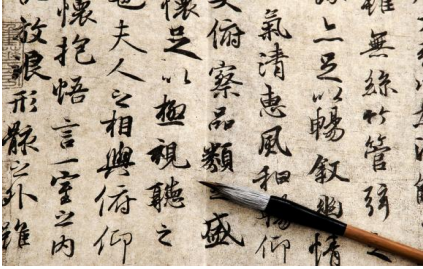 無絲竹管弦之
亦足以暢敘幽情
氣清惠風和暢仰
俯察品類之盛
懷足以極視聽之
也夫人之相與俯仰
懷抱悟言一室之內
放浪形骸之外雖